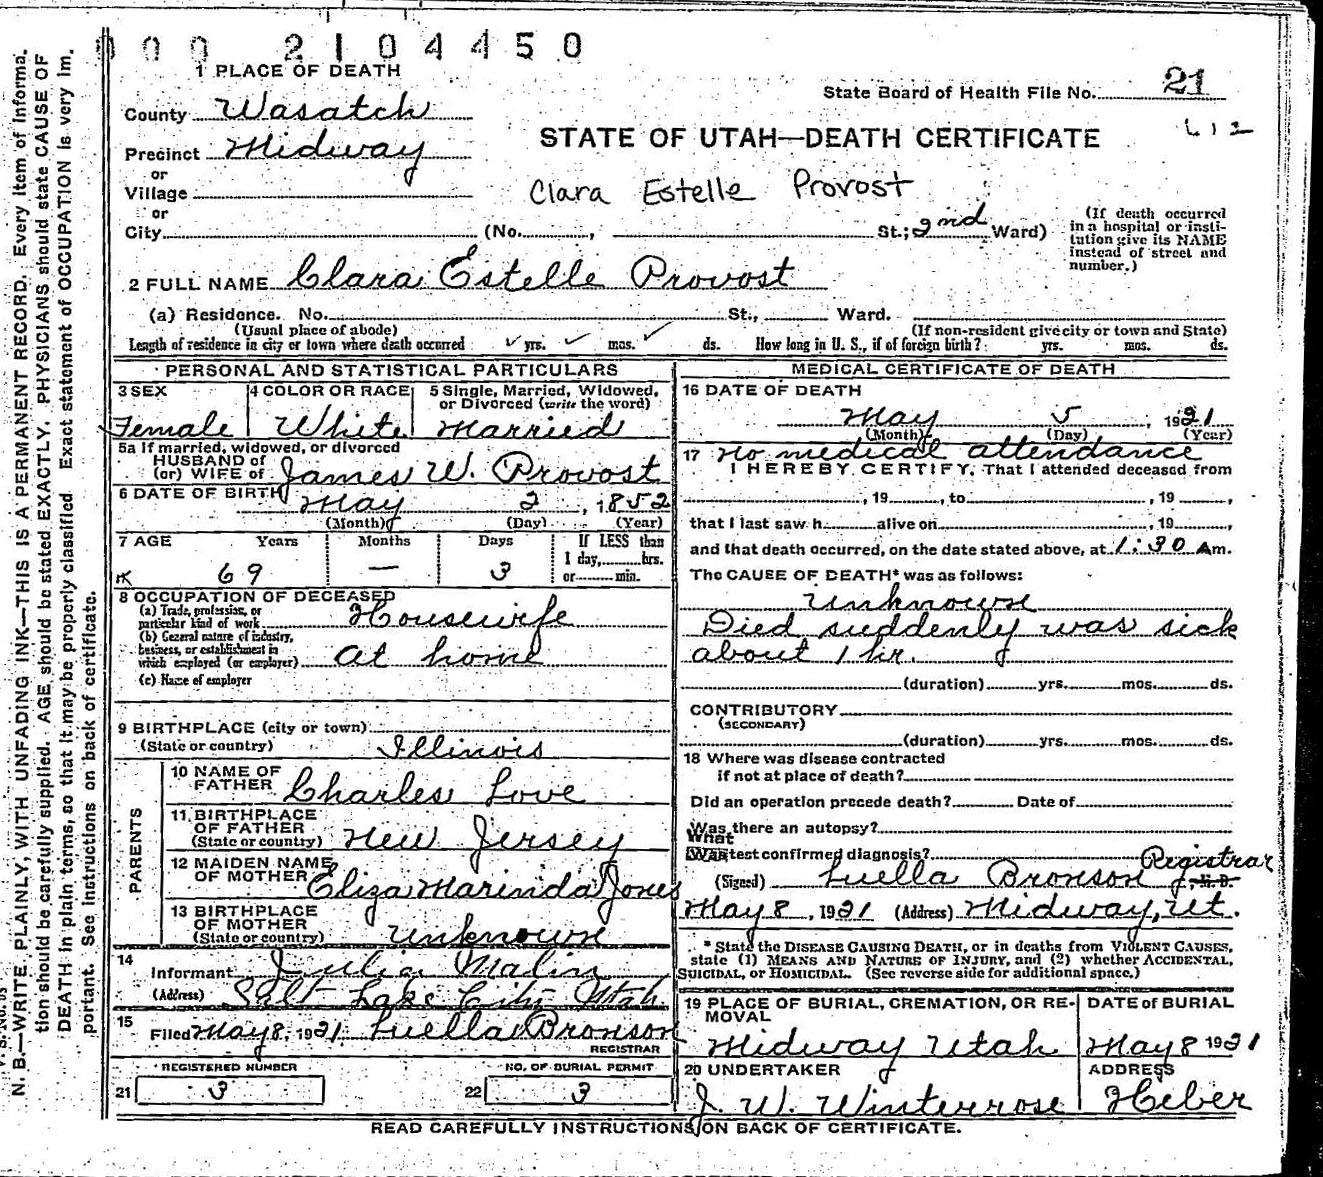 000 2104450
1 PLACE OF DEATH
State Board of Health File No. 21
County Wasatch
STATE OF UTAH—DEATH CERTIFICATE
Precinct Midway
or
Village
Clara Estelle Provost
or
City (No. , St.; 2nd Ward)
(If death occurred
in a hospital or insti-
tution give its NAME
instead of street and
number.)
2 FULL NAME Clara Estelle Provost
(a) Residence. No. St., Ward.
(Usual place of abode) (If non-resident give city or town and State)
Length of residence in city or town where death occurred yrs. mos. ds. How long in U. S., if of foreign birth? yrs. mos. ds.
PERSONAL AND STATISTICAL PARTICULARS
3 SEX 4 COLOR OR RACE 5 Single, Married, Widowed,
or Divorced (write the word)
Female White Married
5a If married, widowed, or divorced
HUSBAND of
(or) WIFE of James W. Provost
6 DATE OF BIRTH May 2, 1852
(Month) (Day) (Year)
7 AGE Years Months Days If LESS than
1 day, hrs.
69 — 3 or min.
8 OCCUPATION OF DECEASED
(a) Trade, profession, or
particular kind of work Housewife
(b) General nature of industry,
business, or establishment in
which employed (or employer) at home
(c) Name of employer
9 BIRTHPLACE (city or town)
(State or country) Illinois
PARENTS
10 NAME OF
FATHER Charles Love
11 BIRTHPLACE
OF FATHER
(State or country) New Jersey
12 MAIDEN NAME
OF MOTHER Eliza Marinda Jones
13 BIRTHPLACE
OF MOTHER
(State or country) unknown
14
Informant Julia Malin
(Address) Salt Lake City Utah
15
Filed May 8, 1921 Luella Bronson
REGISTRAR
REGISTERED NUMBER NO. OF BURIAL PERMIT
21 3 22 3
MEDICAL CERTIFICATE OF DEATH
16 DATE OF DEATH
May 5, 1921
(Month) (Day) (Year)
17 No medical attendance
I HEREBY CERTIFY, That I attended deceased from
, 19 , to , 19 ,
that I last saw h alive on , 19 ,
and that death occurred, on the date stated above, at 1:30 Am.
The CAUSE OF DEATH* was as follows:
Unknown
Died suddenly was sick
about 1 hr.
(duration) yrs. mos. ds.
CONTRIBUTORY
(SECONDARY)
(duration) yrs. mos. ds.
18 Where was disease contracted
if not at place of death?
Did an operation precede death? Date of
Was there an autopsy?
What
test confirmed diagnosis?
Registrar
(Signed) Luella Bronson, M. D.
May 8, 1921 (Address) Midway, Ut.
* State the DISEASE CAUSING DEATH, or in deaths from VIOLENT CAUSES,
state (1) MEANS AND NATURE OF INJURY, and (2) whether ACCIDENTAL,
SUICIDAL, or HOMICIDAL. (See reverse side for additional space.)
19 PLACE OF BURIAL, CREMATION, OR RE-
MOVAL
DATE of BURIAL
Midway Utah May 8 1921
20 UNDERTAKER ADDRESS
J. W. Winterrose Heber
READ CAREFULLY INSTRUCTIONS ON BACK OF CERTIFICATE.
N. B.—WRITE PLAINLY, WITH UNFADING INK—THIS IS A PERMANENT RECORD. Every item of informa-
tion should be carefully supplied. AGE should be stated EXACTLY. PHYSICIANS should state CAUSE OF
DEATH in plain terms, so that it may be properly classified. Exact statement of OCCUPATION is very im-
portant. See instructions on back of certificate.